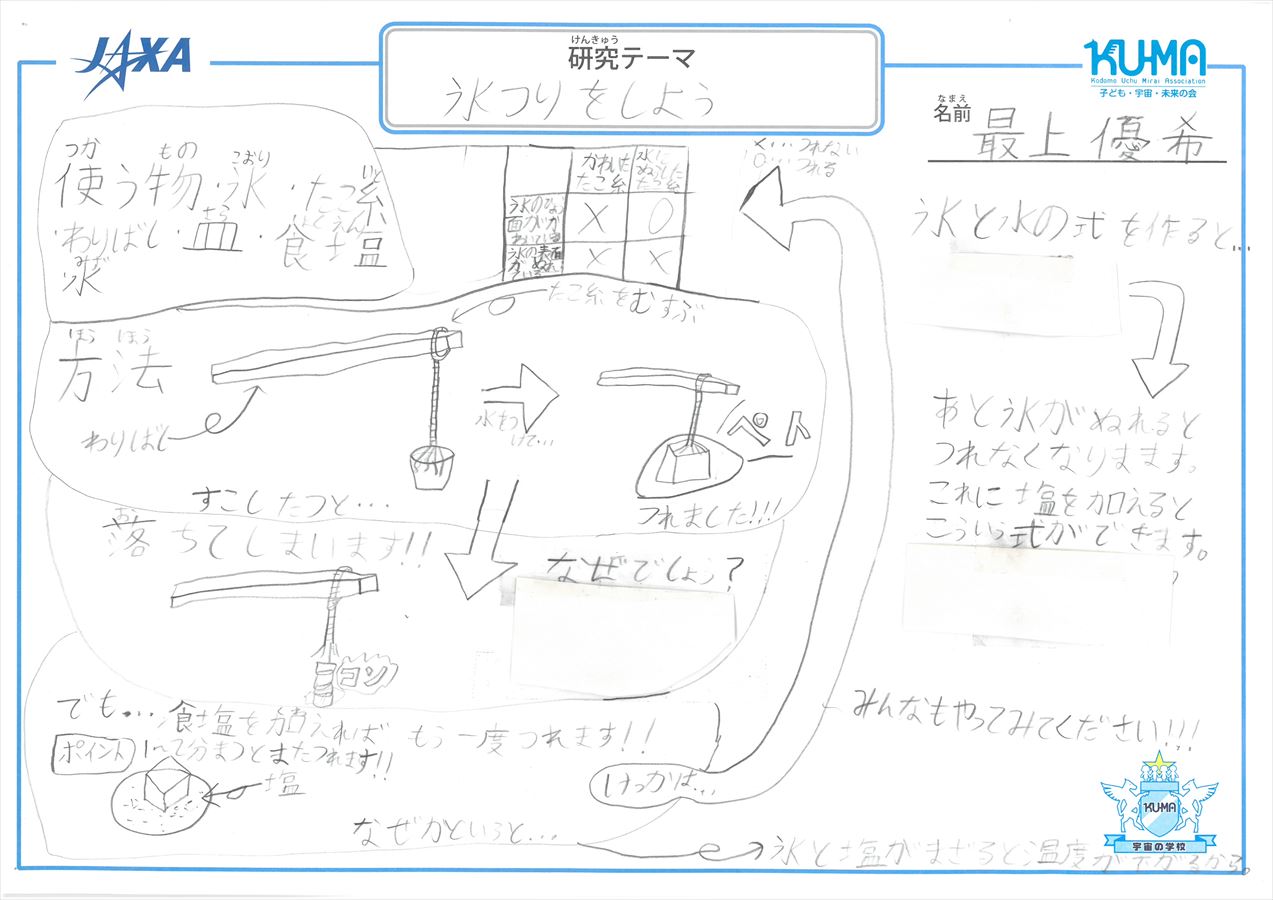 JAXA
けんきゅう
研究テーマ
氷つりをしよう
KU-MA
Kodomo Uchu Mirai Association
子ども・宇宙・未来の会
なまえ
名前 最上優希
つか もの こおり いと
使う物・氷・たこ糸
・わりばし・塩・食塩
しお しょくえん
みず
水
かわいた
たこ糸
水に
ぬらした
たこ糸
氷の
面がか
X O
氷の表面
がぬれ
ている
X X
X…つれない
O…つれる
たこ糸をむすぶ
ほう ほう
方法
わりばし
水をつ
けて…
ペト
つれました!!!
すこしたつと…
お
落ちてしまいます!!
なぜでしょう?
ゴン
でも…食塩を加えればもう一度つれます!!
ポイント 1〜2分まつとまたつれます!!
塩
けっかは…
なぜかというと…
氷と塩がまざると温度が下がるから。
氷と水の式を作ると…
あと氷がぬれると
つれなくなります。
これに塩を加えると
こういう式ができます。
みんなもやってみてください!!!
KU-MA
宇宙の学校